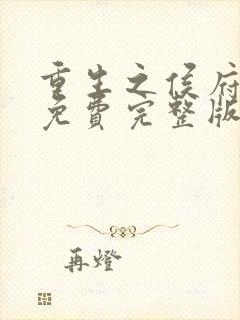 重生之侯府
免費完整版
再燈